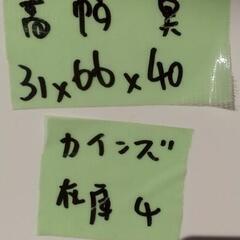 高 幅 奥
31×66×40
カインズ
在庫 4